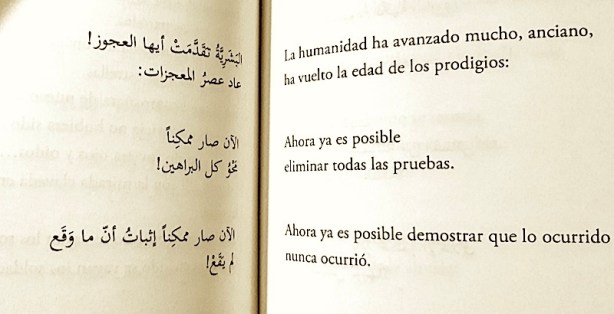 البَشَرِيَّةُ تَقَدَّمَتْ أيها العجوز!
عاد عصرُ المعجزات:
الآن صار ممكِناً
مَحْوُ كل البراهين!
الآن صار ممكِناً إثباتُ أنّ ما وَقَع
لم يَقَعْ!
La humanidad ha avanzado mucho, anciano,
ha vuelto la edad de los prodigios:
Ahora ya es posible
eliminar todas las pruebas.
Ahora ya es posible demostrar que lo ocurrido
nunca ocurrió.